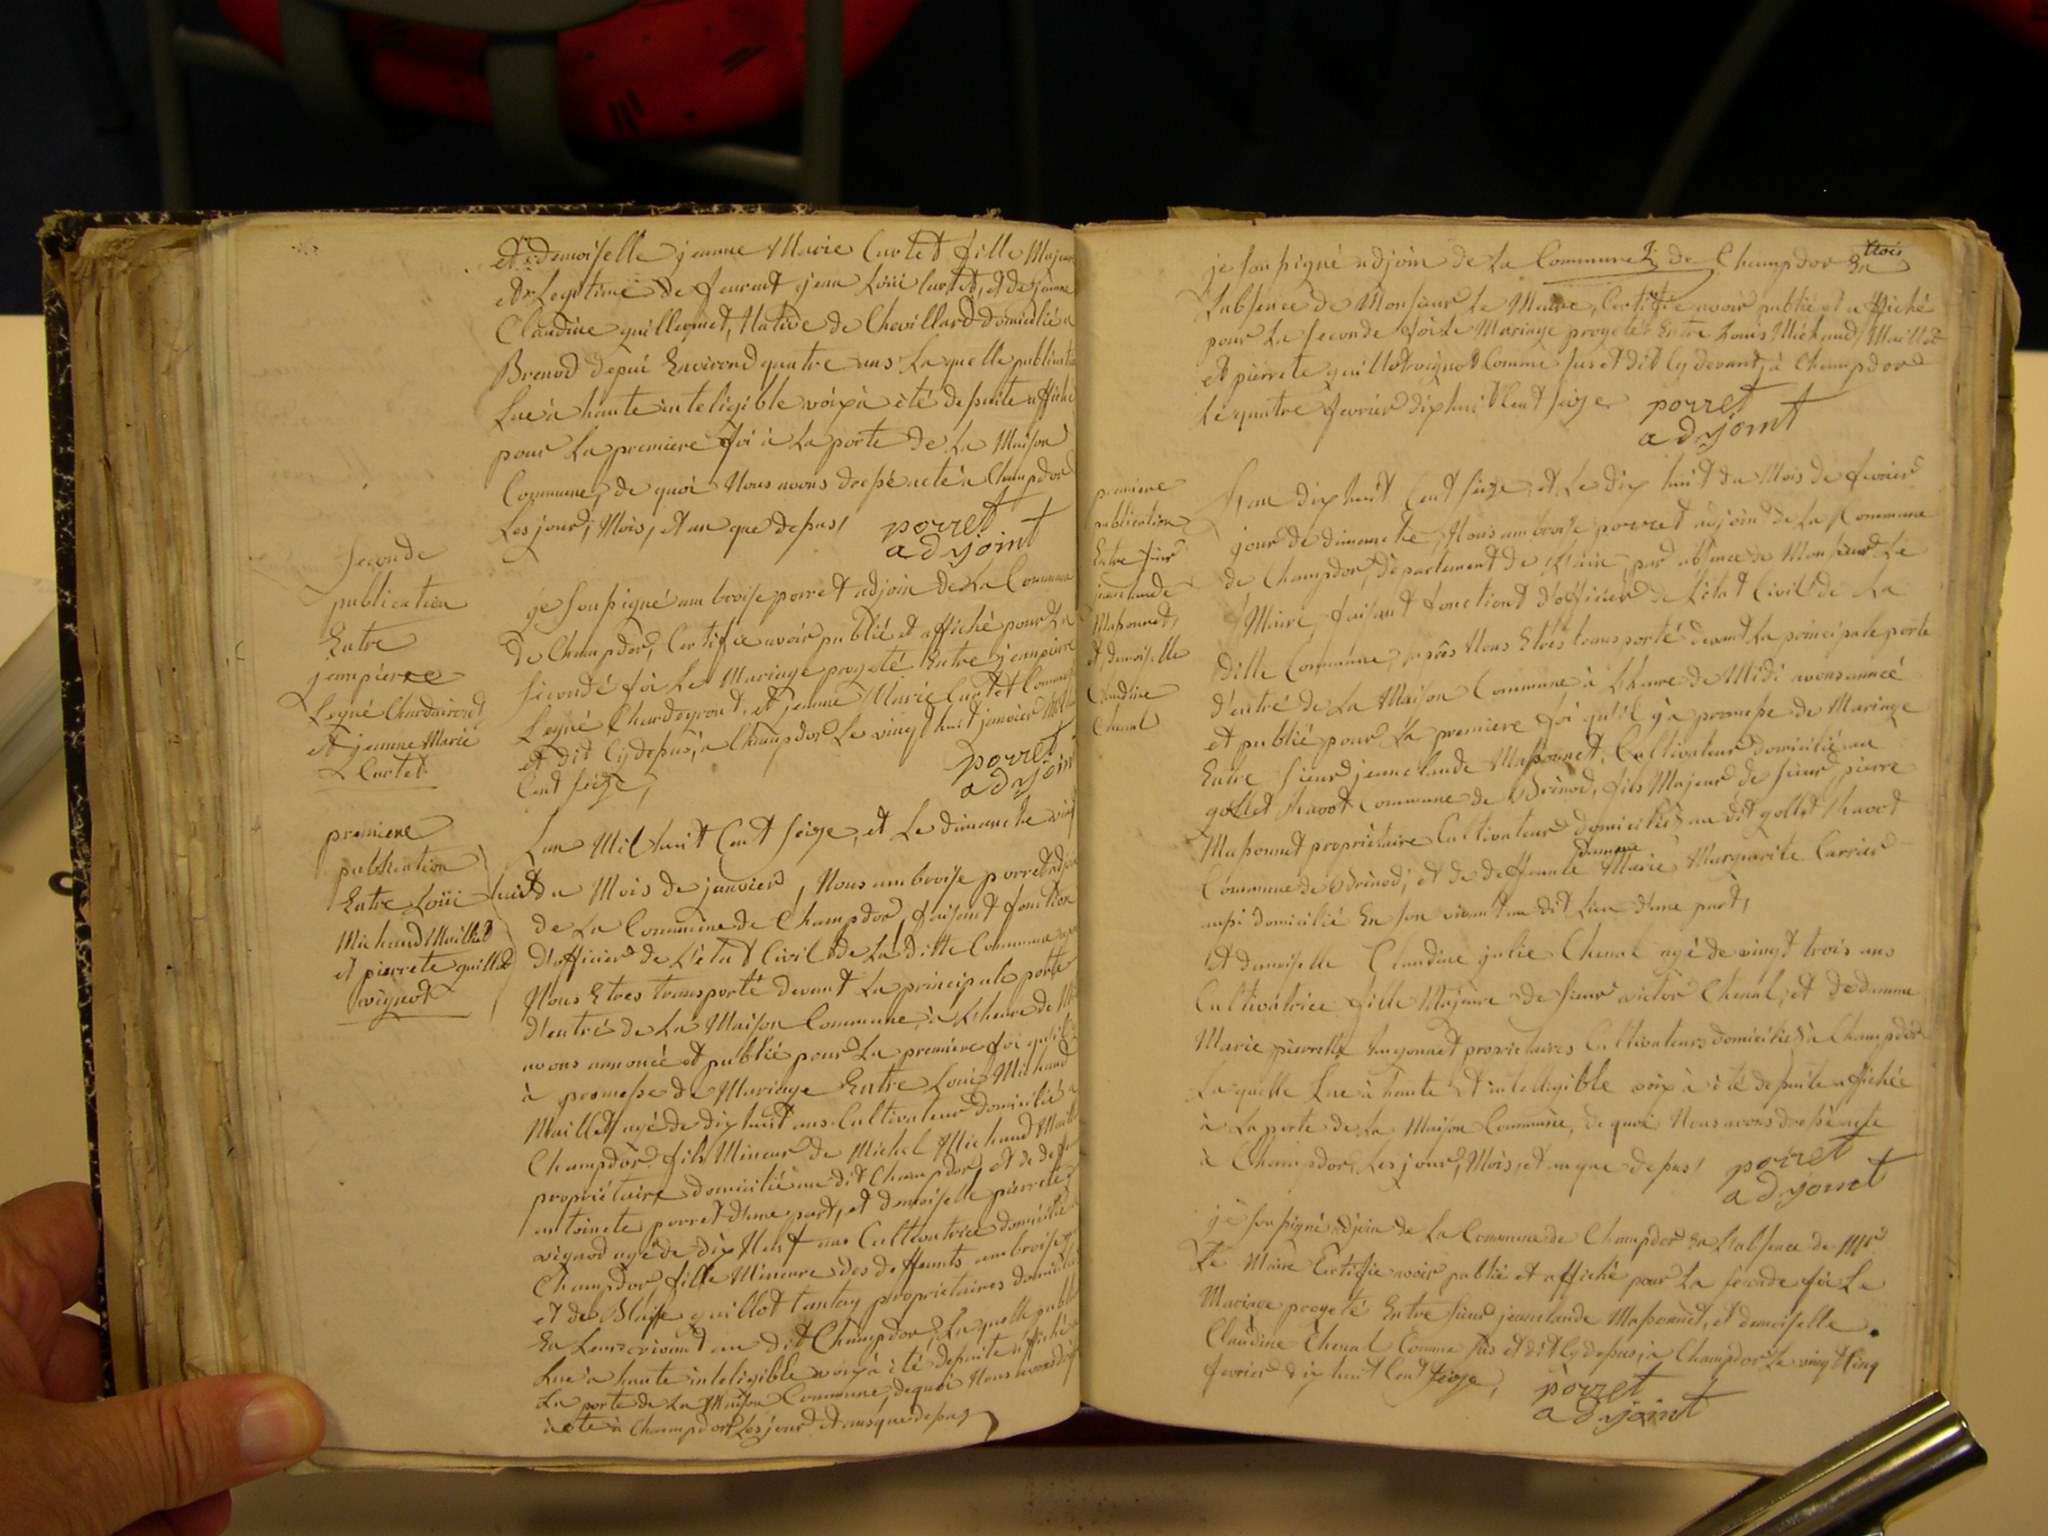 et demoiselle jeanne Marie Curtet fille Majeure
et Legitime de feu jean Loüi Curtet, et de jeanne
Claudine guillermet, Native de Chevillard domicilié a
Brenod depui Environd quatre ans La quelle publication
Lue à haute inteligible voix à été de suite affiché
pour La premiere foi à La porte de La Maison
Commune, de quoi Nous avons dressé acte à Champdor
Les jour, Mois, et an que dessus,
porret
adjoint
Seconde
publication
Entre
jeanpierre
Leyné Chardeiront
et jeanne Marie
Curtet
je Soussigné ambroise porret adjoin de La Commune
de Champdor, Certifie avoir publié et affiché pour La
Seconde foi Le Mariage progeté Entre jeanpierre
Leyné Chardeyront, et jeanne Marie Curtet Comme
et dit Cy dessus, à Champdor Le vingt huit janvier
Cent Seize,
porret
adjoint
premiere
publication
Entre Loüi
Michaud Maillet
et pierrete guillot
vignod
Lan Mil huit Cent Seize, et Le dimanche vingt
huit du Mois de janvier, Nous ambroise porret adjoin
de La Commune de Champdor, faisant fonction
d'officier de L'état Civil de La ditte Commune
Nous Etres transporté devant La principale porte
d'entré de La Maison Commune, à L'heure de Midi
avons annoncé et publié pour La premiere foi qu'il
à promesse de Mariage Entre Louis Michaud
Maillet agé de dix huit ans Cultivateur domicilié a
Champdor fils Mineur de Michel Michaud Maillet
propriétaire domicilié au dit Champdor, et de
antoinete porret d'une part, et demoiselle pierrete
vignod agé de dix Neuf ans Cultivatrice domicilié a
Champdor fille Mineure des deffunts ambroise
et de Blaise guillot tantay propriétaires domiciliés
En Leur vivant au dit Champdor, La quelle publication
Lue à haute inteligible voix à été de suite affiché
La porte de La Maison Commune, de quoi Nous avons dressé
acte à Champdor Les jour et ans que dessus
je soussigné adjoin de La Commune de Champdor En
trois
L'absence de Monsieur Le Maire, Certifie avoir publié et affiché
pour La Seconde foi Le Mariage progeté Entre Louis Michaud Maillet
et pierrete guillot vignod Comme sus et dit Cy devant, à Champdor
Le quatre fevrier dix huit Cent Seize
porret
adjoint
premiere
publication
Entre Sieur
jean Claude
Massonnet,
et demoiselle
Claudine
Chenal
L'an dix huit Cent Seize, et Le dix huit du Mois de fevrier
jour de dimanche, Nous ambroise porret adjoin de La Commune
de Champdor, département de L'ain, par absence de Monsieur Le
Maire, faisant fonctions d'officier de L'état Civil de La
ditte Commune, après Nous Etres transporté devant La principale porte
d'entré de La Maison Commune à L'heure de Midi avons annoncé
et publié pour La premiere foi qu'il y à promesse de Mariage
Entre Sieur jean Claude Massonnet, Cultivateur domicilié au
gollet Navot Commune de Brénod, fils Majeur de Sieur pierre
Massonnet propriétaire Cultivateur domicilié au dit gollet Navot
Commune de Brénod, et de deffunte damme Marie Marguerite Carrier
aussi domicilié En son vivant au dit Lieu d'une part,
et demoiselle Claudine julie Chenal agé de vingt trois ans
Cultivatrice fille Majeure de Sieur victor Chenal, et de damme
Marie pierrette propriétaires Cultivateurs domiciliés à Champdor
La quelle Lue à haute et intelligible voix à été de suite affichée
à La porte de La Maison Commune, de quoi Nous avons dressé acte
à Champdor, Les jour, Mois, et an que dessus,
porret
adjoint
je soussigné adjoin de La Commune de Champdor En L'absence de Mr
Le Maire Certifie avoir publié et affiché pour La Seconde foi Le
Mariage progeté Entre Sieur jean Claude Massonnet, et demoiselle
Claudine Chenal Comme sus et dit Cy dessus, à Champdor Le vingt Cinq
fevrier dix huit Cent Seize,
porret
adjoint